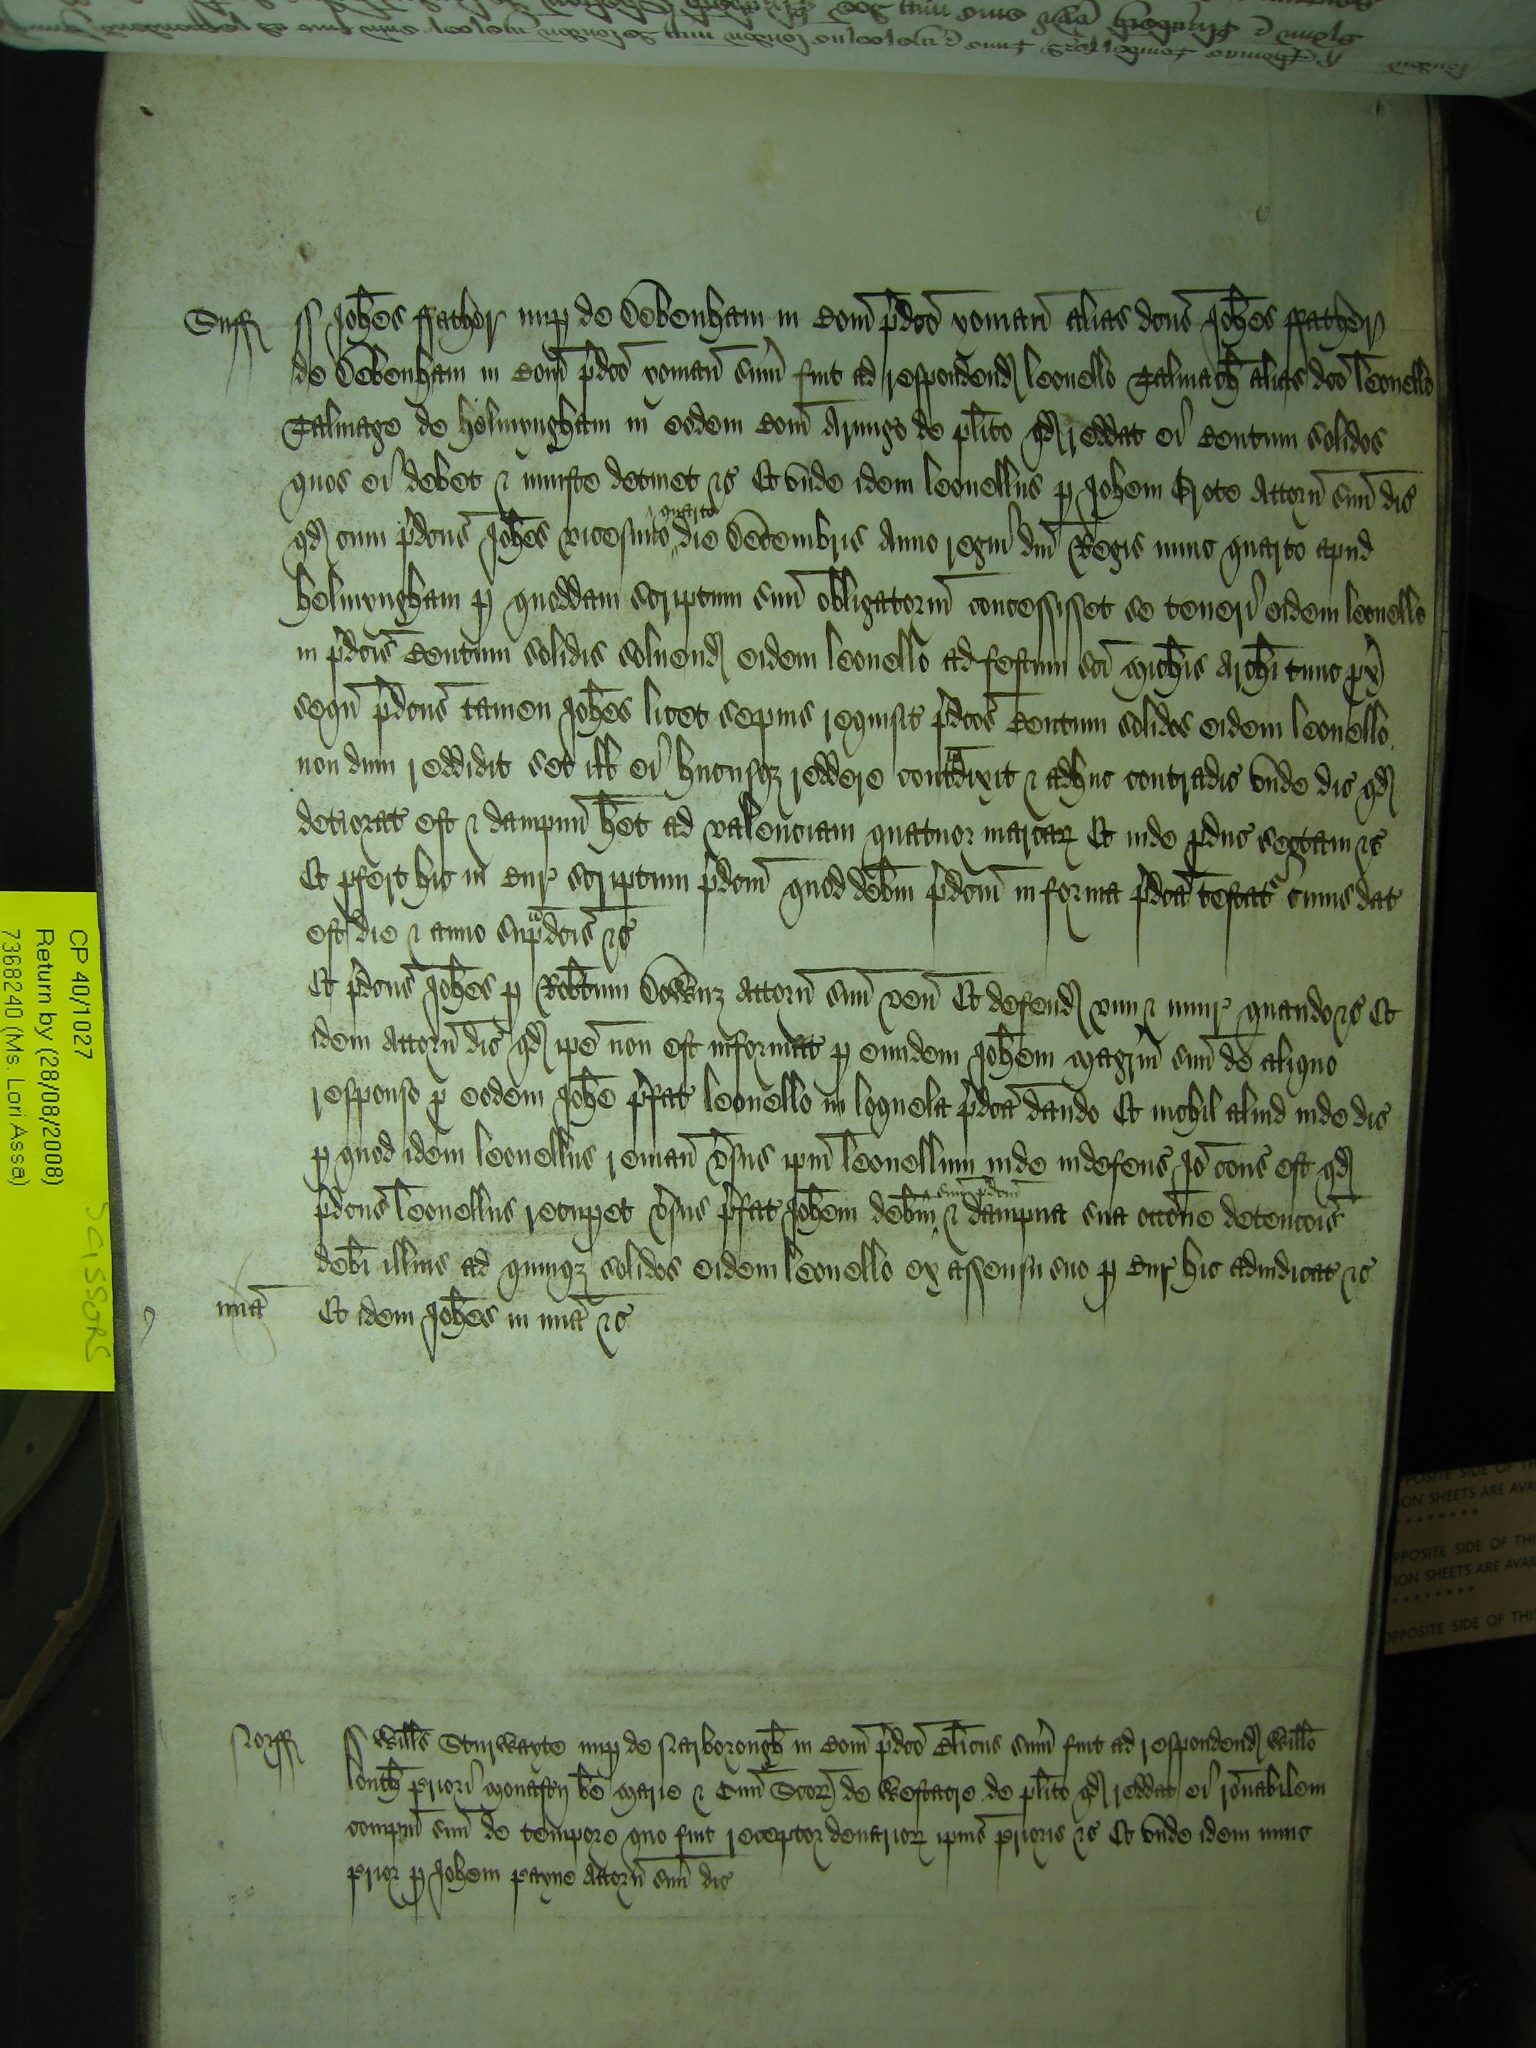 Suff ss Joh̄es ffather nup de Debenham in Com̄ p̄dc̄o yoman̄ alias dc̄us Joh̄es ffather
de Debenham in Com̄ p̄dc̄o yoman̄ sum̄ fuit ad respondend leonello Talmach̄ alias dc̄o leonello
Talmage de helmyngham in eodem Com̄ Armigo de pl̄ito qd reddat ei Centum solidos
quos ei debet & iniuste detinet &c Et unde idem leonellus p Joh̄em Grote Attorn̄ suū dic
qd cum p̄dcus Joh̄es vicesimo quarto die Decembris Anno regni dn̄i Regis nunc quarto apud
helmyngham p quoddam scriptum suū obligatoriū concessisset se teneri eidem leonello
in p̄dc̄is Centum solidis soluend eidem leonello ad festum sc̄i Mich̄is Arch̄i tunc px̄
sequn̄ p̄dcus tamen Joh̄es licet sepius requisit p̄dc̄os Centum solidos eidem leonello
non dum reddidit set ill̄ ei hucusqʒ reddere contᵃdixit & adhuc contradic unde dic qd
deteriorat est & dampnū h̄et ad valenciam quatuor marcaꝝ Et inde pduc sectam &c
Et pfert hic in Cur scriptum p̄dcm̄ quod deb̄m p̄dcm̄ in forma p̄dc̄a testat cuius dat
est die & anno supᵃdc̄is &c
Et p̄dcus Joh̄es p Rob̄tum attorn̄ suū ven̄ Et defend vim & iniur quando &c Et
idem Attorn̄ dic qd ip̄e non est informat p eundem Joh̄em Magr̄m suū de aliquo
responso p eodem Joh̄e p̄fat leonello in loquela p̄dc̄a dando Et nichil aliud inde dic
p quod idem leonellus reman̄ vsus ip̄m leonellum inde indefens Jo cons est qd
p̄dcus leonellus recupet vsus p̄fat Joh̄em deb̄m suū p̄dcm̄ & dampna sua occōne detencōis
deb̄i illius ad quinqʒ solidos eidem leonello ex assensu suo p Cur hic adiudicat &c
mīa Et idem Joh̄es in mīa &c
Norff ss Will̄s nup de Narborough̄ in Com̄ p̄dc̄o Cl̄icus sum̄ fuit ad respondend Will̄o
Priori Monasterij b̄e Marie & Om̄i Sc̄oꝝ de Westacre de pl̄ito qd reddat ei rōnabilem
compm̄ suū de tempore quo fuit receptor denarioꝝ ipius Prioris &c Et unde idem nunc
prior p Joh̄em payne Attorn̄ suū dic
CP 40/1027
Return by (28/08/2008)
7368240 (Ms. Lori Assa)
SCISSORS
OPPOSITE SIDE OF TH
ION SHEETS ARE AVA
OPPOSITE SIDE OF THI
TION SHEETS ARE AVAI
OPPOSITE SIDE OF THIS